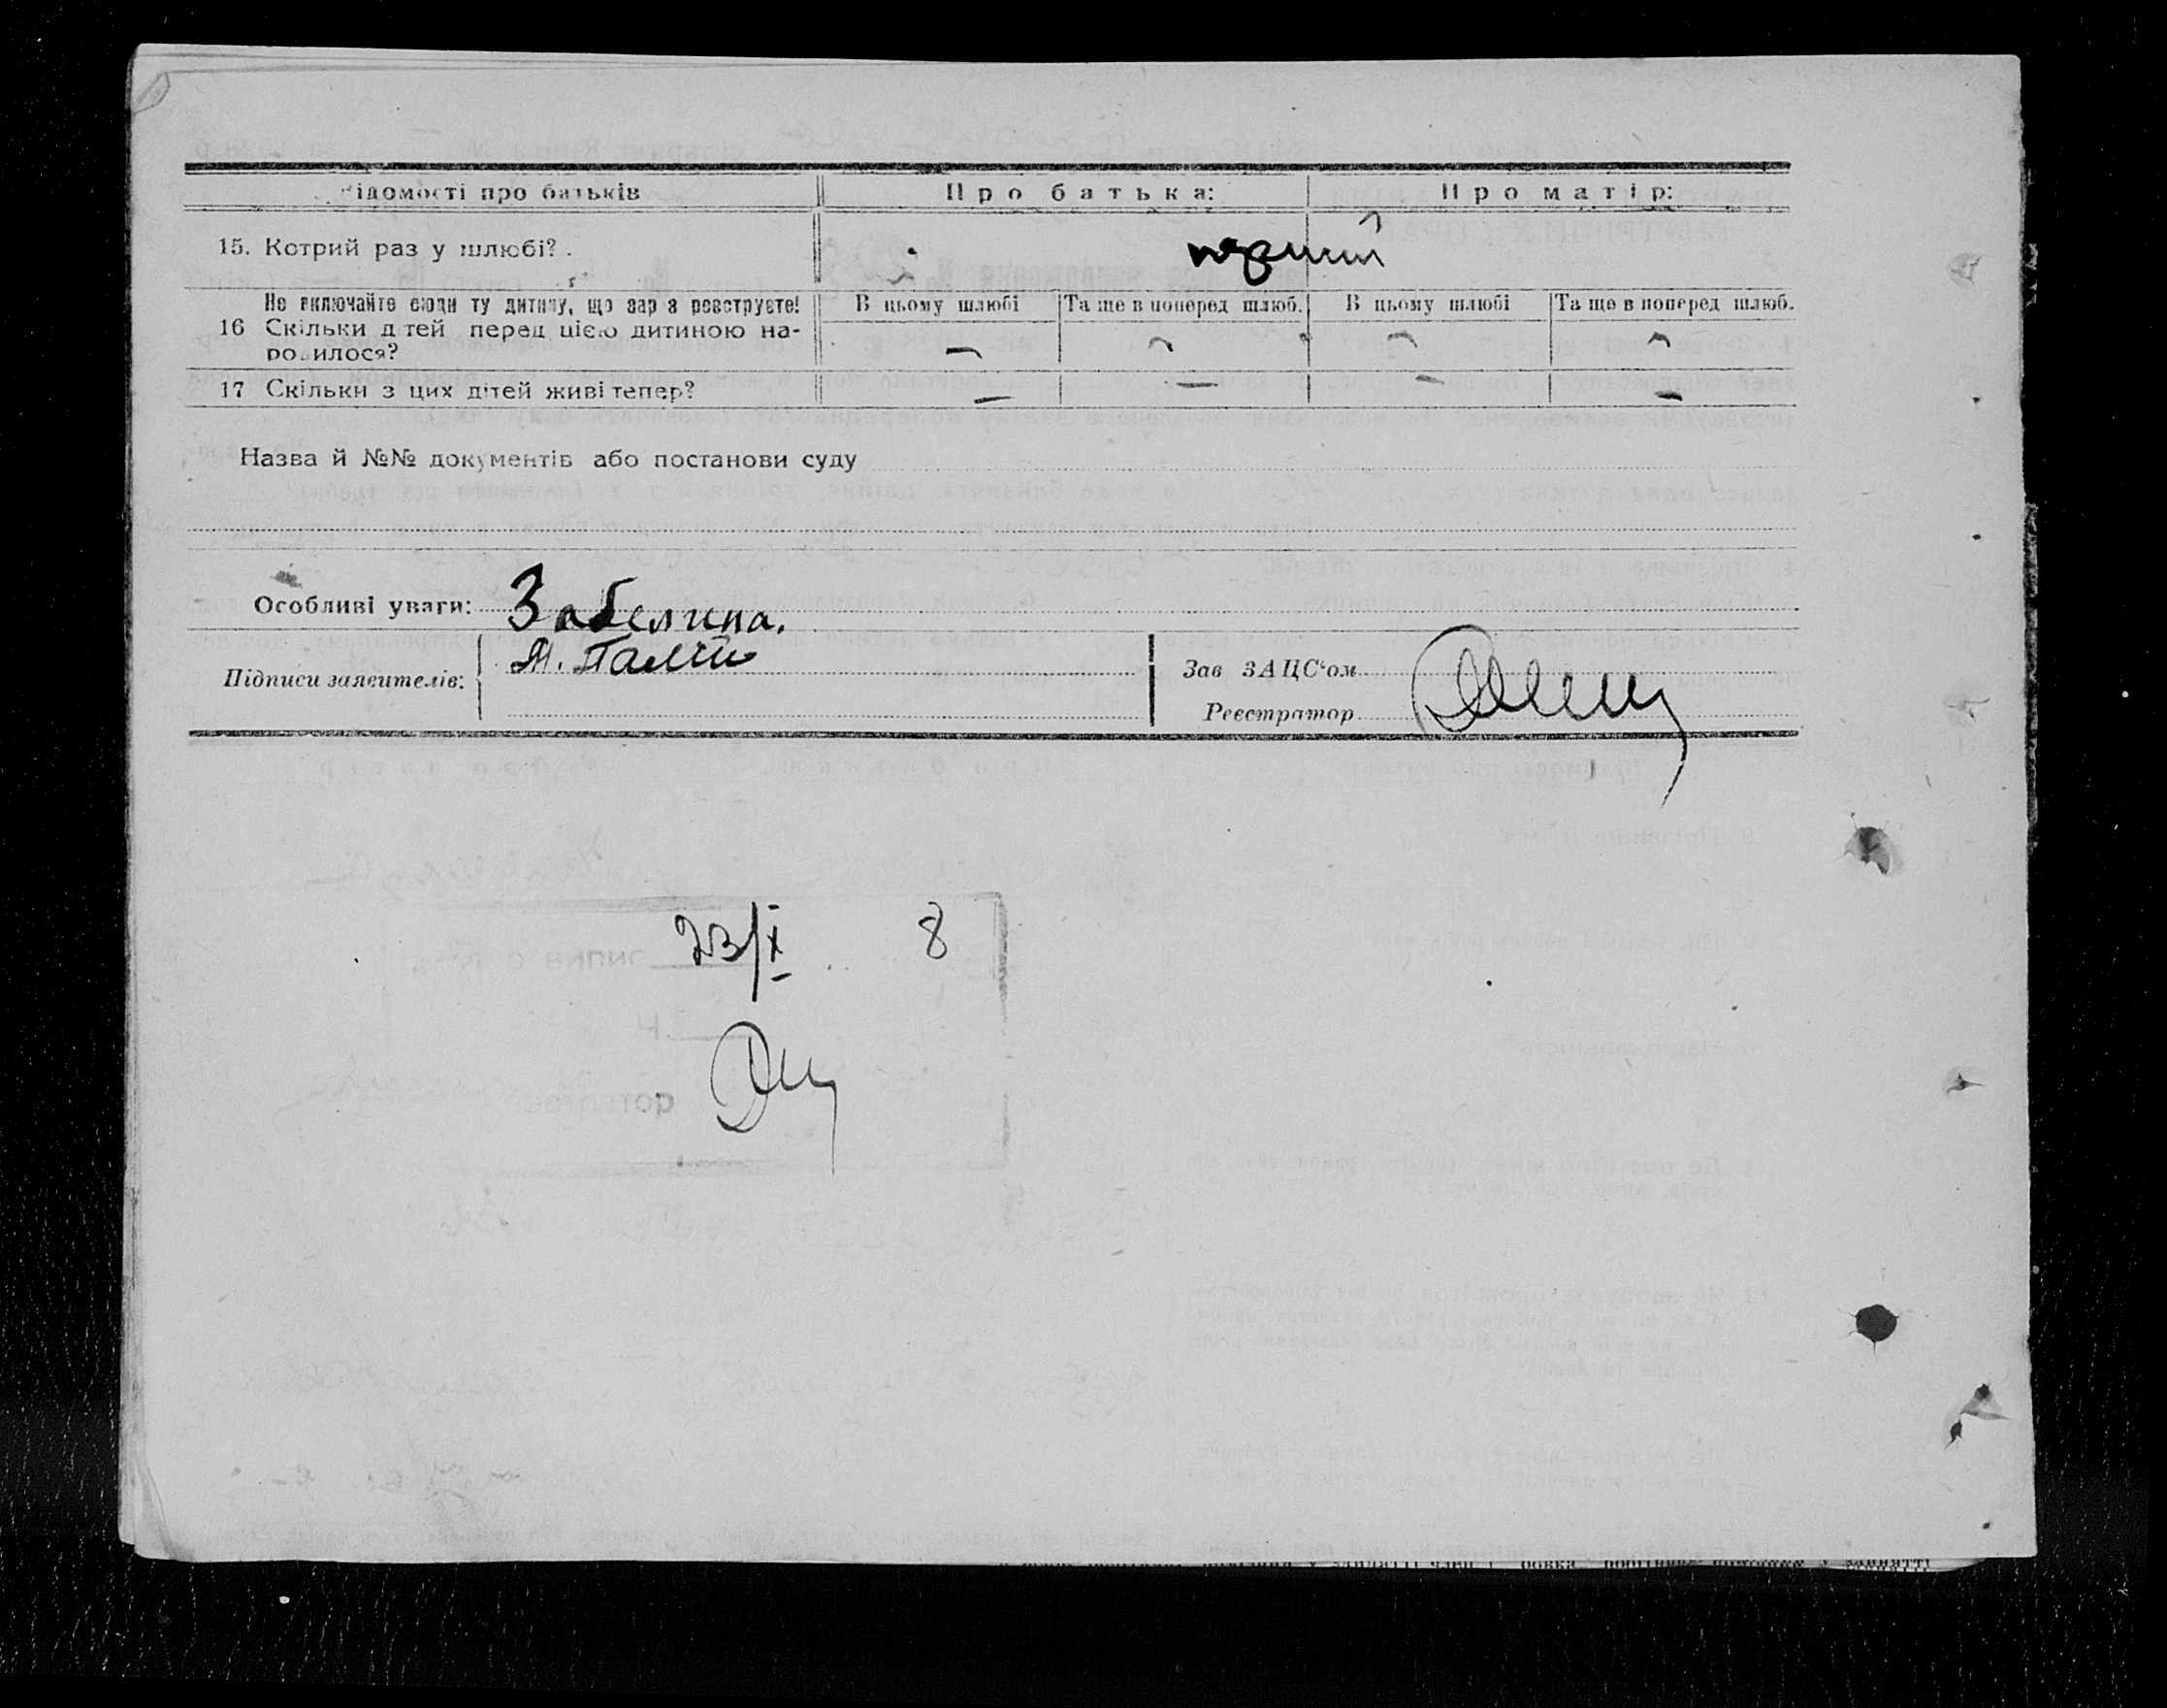 Відомості про батьків Про батька: Про матір:
15. Котрий раз у шлюбі? перший
Не включайте сюди ту дитину, що зараз реєструєте! В цьому шлюбі Та ще в поперед шлюб. В цьому шлюбі Та ще в поперед шлюб.
16 Скільки дітей перед цією дитиною на-
родилося? — — — —
17 Скільки з цих дітей живі тепер? — — — —
Назва й №№ документів або постанови суду
Особливі уваги: Забелина.
Підписи заявителів: М. Палій
Зав ЗАЦС‘ом
Реєстратор
23/X 8